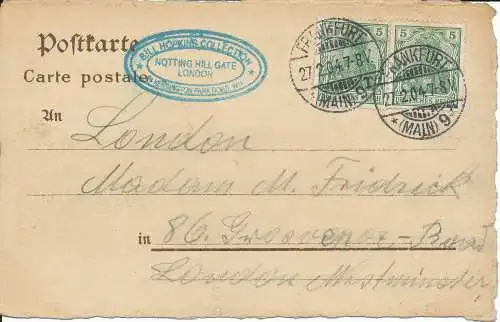 Postkarte
Carte postale
BILL HOPKINS COLLECTION
NOTTING HILL GATE
LONDON
KENSINGTON PARK ROAD, W11
FRANKFURT
27.2.04.7-8V.
*(MAIN) 9
5
5
FRANKFURT
27.2.04.7-8V.
*(MAIN) 9
An
London
Madam M. Fridrick
in
86. Grosvenor-Road
London Westminster